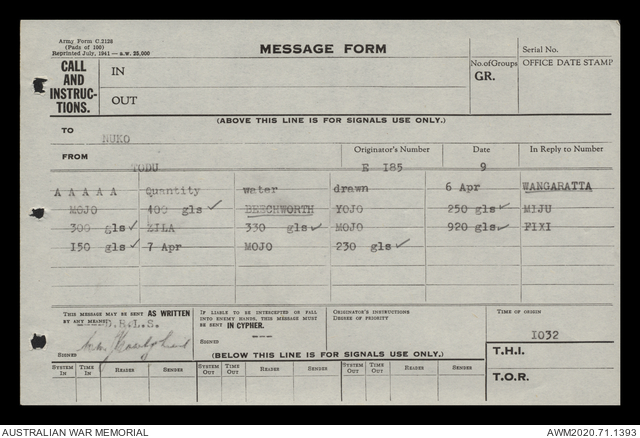 Army Form C.2128
(Pads of 100)
Reprinted July, 1941 — a.w. 25,000
MESSAGE FORM
Serial No.
CALL AND INSTRUC- TIONS.
IN
No. of Groups
GR.
OFFICE DATE STAMP
OUT
(ABOVE THIS LINE IS FOR SIGNALS USE ONLY.)
TO NUKO
FROM TODU
Originator's Number E I85
Date 9
In Reply to Number
A A A A A Quantity water drawn 6 Apr WANGARATTA
MOJO 400 gls BEECHWORTH YOJO 250 gls MIJU
300 gls ZILA 330 gls MOJO 920 gls FIXI
I50 gls 7 Apr MOJO 230 gls
THIS MESSAGE MAY BE SENT AS WRITTEN BY ANY MEANS D.R.L.S.
SIGNED
IF LIABLE TO BE INTERCEPTED OR FALL INTO ENEMY HANDS, THIS MESSAGE MUST BE SENT IN CYPHER.
SIGNED
ORIGINATOR'S INSTRUCTIONS
DEGREE OF PRIORITY
TIME OF ORIGIN
I032
(BELOW THIS LINE IS FOR SIGNALS USE ONLY.)
T.H.I.
SYSTEM IN TIME IN READER SENDER SYSTEM OUT TIME OUT READER SENDER SYSTEM OUT TIME OUT READER SENDER
T.O.R.
AUSTRALIAN WAR MEMORIAL
AWM2020.71.1393